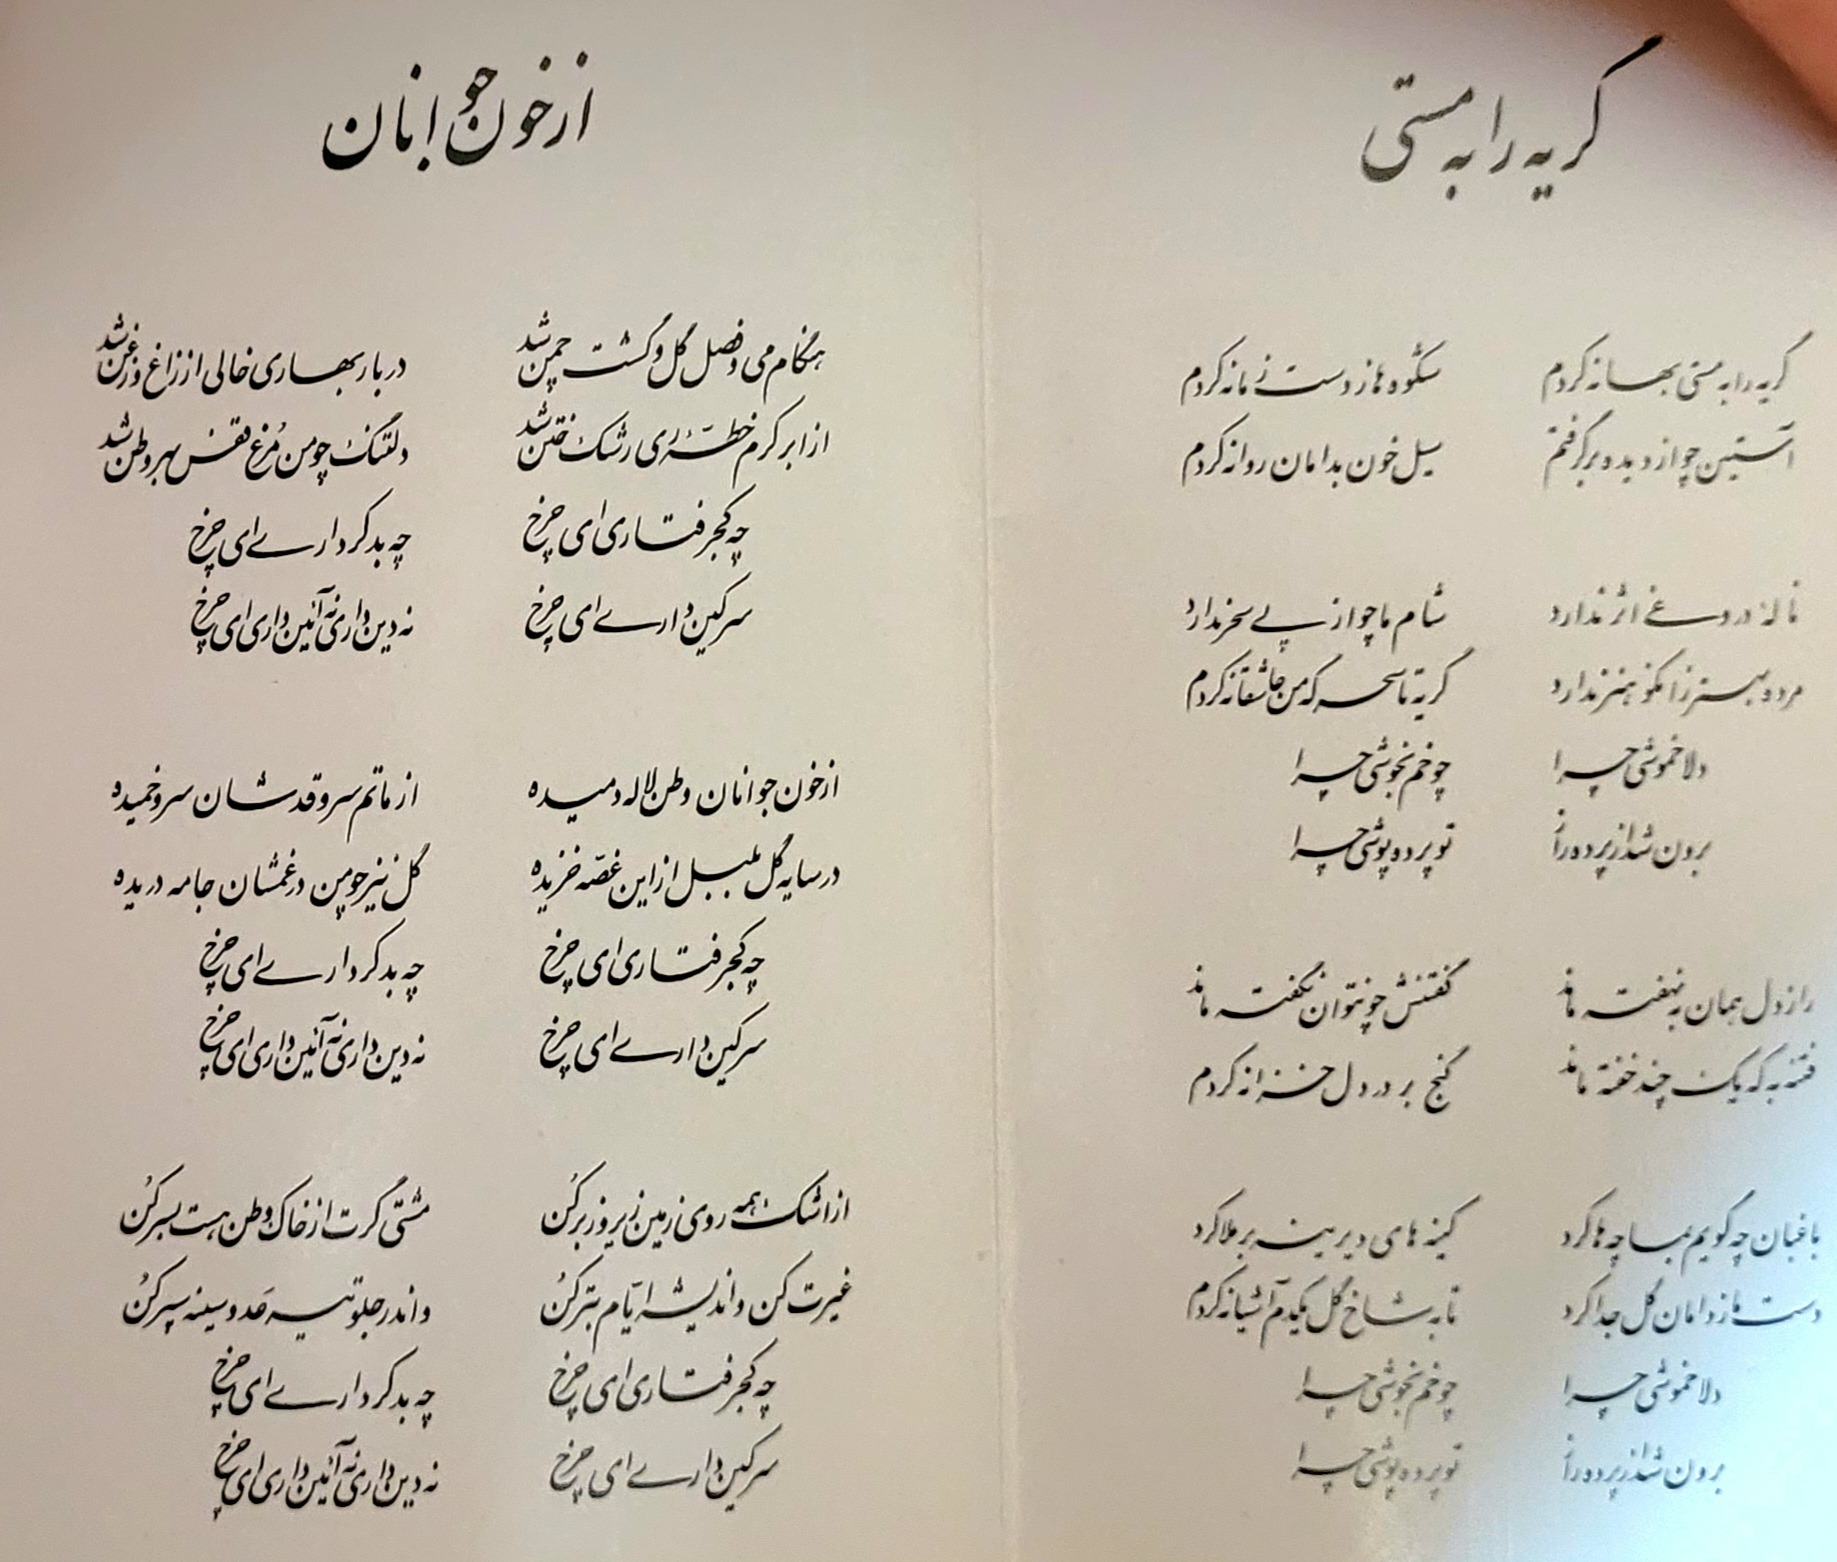 گریه را به مستی
گریه را به مستی بهانه کردم	شکوه ها ز دست زمانه کردم
آستین چو از دیده برگرفتم	سیل خون بدامان روانه کردم
ناله دروغی اثر ندارد	شام ما چو از پی سحر ندارد
مرده بهتر زانکو هنر ندارد	گریه تا سحر که من عاشقانه کردم
دلا خموشی چرا	چو خم نجوشی چرا
برون شد از پرده راز	تو پرده پوشی چرا
راز دل همان به نهفته ماند	گفتنش چو نتوان نگفته ماند
فتنه به که یک چند خفته ماند	گنج بر در دل خزانه کردم
باغبان چه گویم بما چه ها کرد	کینه های دیرینه برملا کرد
دست ما ز دامان گل جدا کرد	تا به شاخ گل یکدم آشیانه کردم
دلا خموشی چرا	چو خم نجوشی چرا
برون شد از پرده راز	تو پرده پوشی چرا
از خون جوانان
هنگام می و فصل گل و گشت چمن شد	دربار بهاری خالی از زاغ و زغن شد
از ابر کرم خطهٔ ری رشک ختن شد	دلتنگ چو من مُرغ قفس بهر وطن شد
چه کجرفتاری ای چرخ	چه بدکرداری ای چرخ
سر کین داری ای چرخ	نه دین داری نه آئین داری ای چرخ
از خون جوانان وطن لاله دمیده	از ماتم سرو قدشان سرو خمیده
در سایه گل بلبل از این غصّه خزیده	گل نیز چو من در غمشان جامه دریده
چه کجرفتاری ای چرخ	چه بدکرداری ای چرخ
سر کین داری ای چرخ	نه دین داری نه آئین داری ای چرخ
از اشک همه روی زمین زیر و زبر کُن	مشتی گرت از خاک وطن هست بسر کُن
غیرت کن و اندیشه ایّام بتر کُن	و اندر جلو تیر عدو سینه سپر کُن
چه کجرفتاری ای چرخ	چه بدکرداری ای چرخ
سر کین داری ای چرخ	نه دین داری نه آئین داری ای چرخ